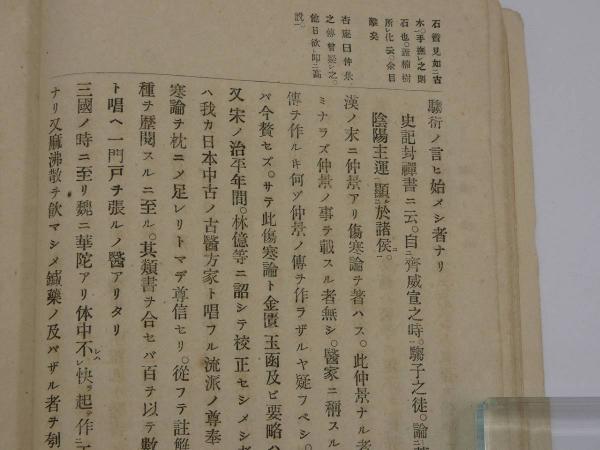 石質見如ニ古
木一。手撫レ之則
石也。蓋楠樹
所レ化云。余目
擊矣
杏庭曰仲景
之傳曾疑レ之
他日欲ト叩ニ高
說一。
騶衍ノ言ヒ始メシ者ナリ
史記封禪書ニ云。自ニ齊威宣之時。騶子之徒。論ニ
陰陽主運。顯ニ於諸侯一。
漢ノ末ニ仲景アリ傷寒論ヲ著ハス。此仲景ナル者
ミナラズ仲景ノ事ヲ載スル者無シ。醫家ニ稱スル
傳ヲ作ルキ何ゾ仲景ノ傳ヲ作ラザルヤ疑フベシ。
バ今贅セズ。サテ此傷寒論ト金匱玉函及ビ要略ハ
又宋ノ治平年間。林億等ニ詔シテ校正セシメシ
ハ我カ日本中古ノ古醫方家ト唱フル流派ノ尊奉
寒論ヲ枕ニメ足レリトマデ尊信セリ。從フテ註解
種ヲ歷閱スルニ至ル。其類書ヲ合セバ百ヲ以テ數
ト唱ヘ一門戶ヲ張ルノ醫アリタリ
三國ノ時ニ至リ魏ニ華陀アリ体中不レ快。起ヲ作
ナリ又麻沸散ヲ飮マシメ鍼藥ノ及バザル者ヲ刳